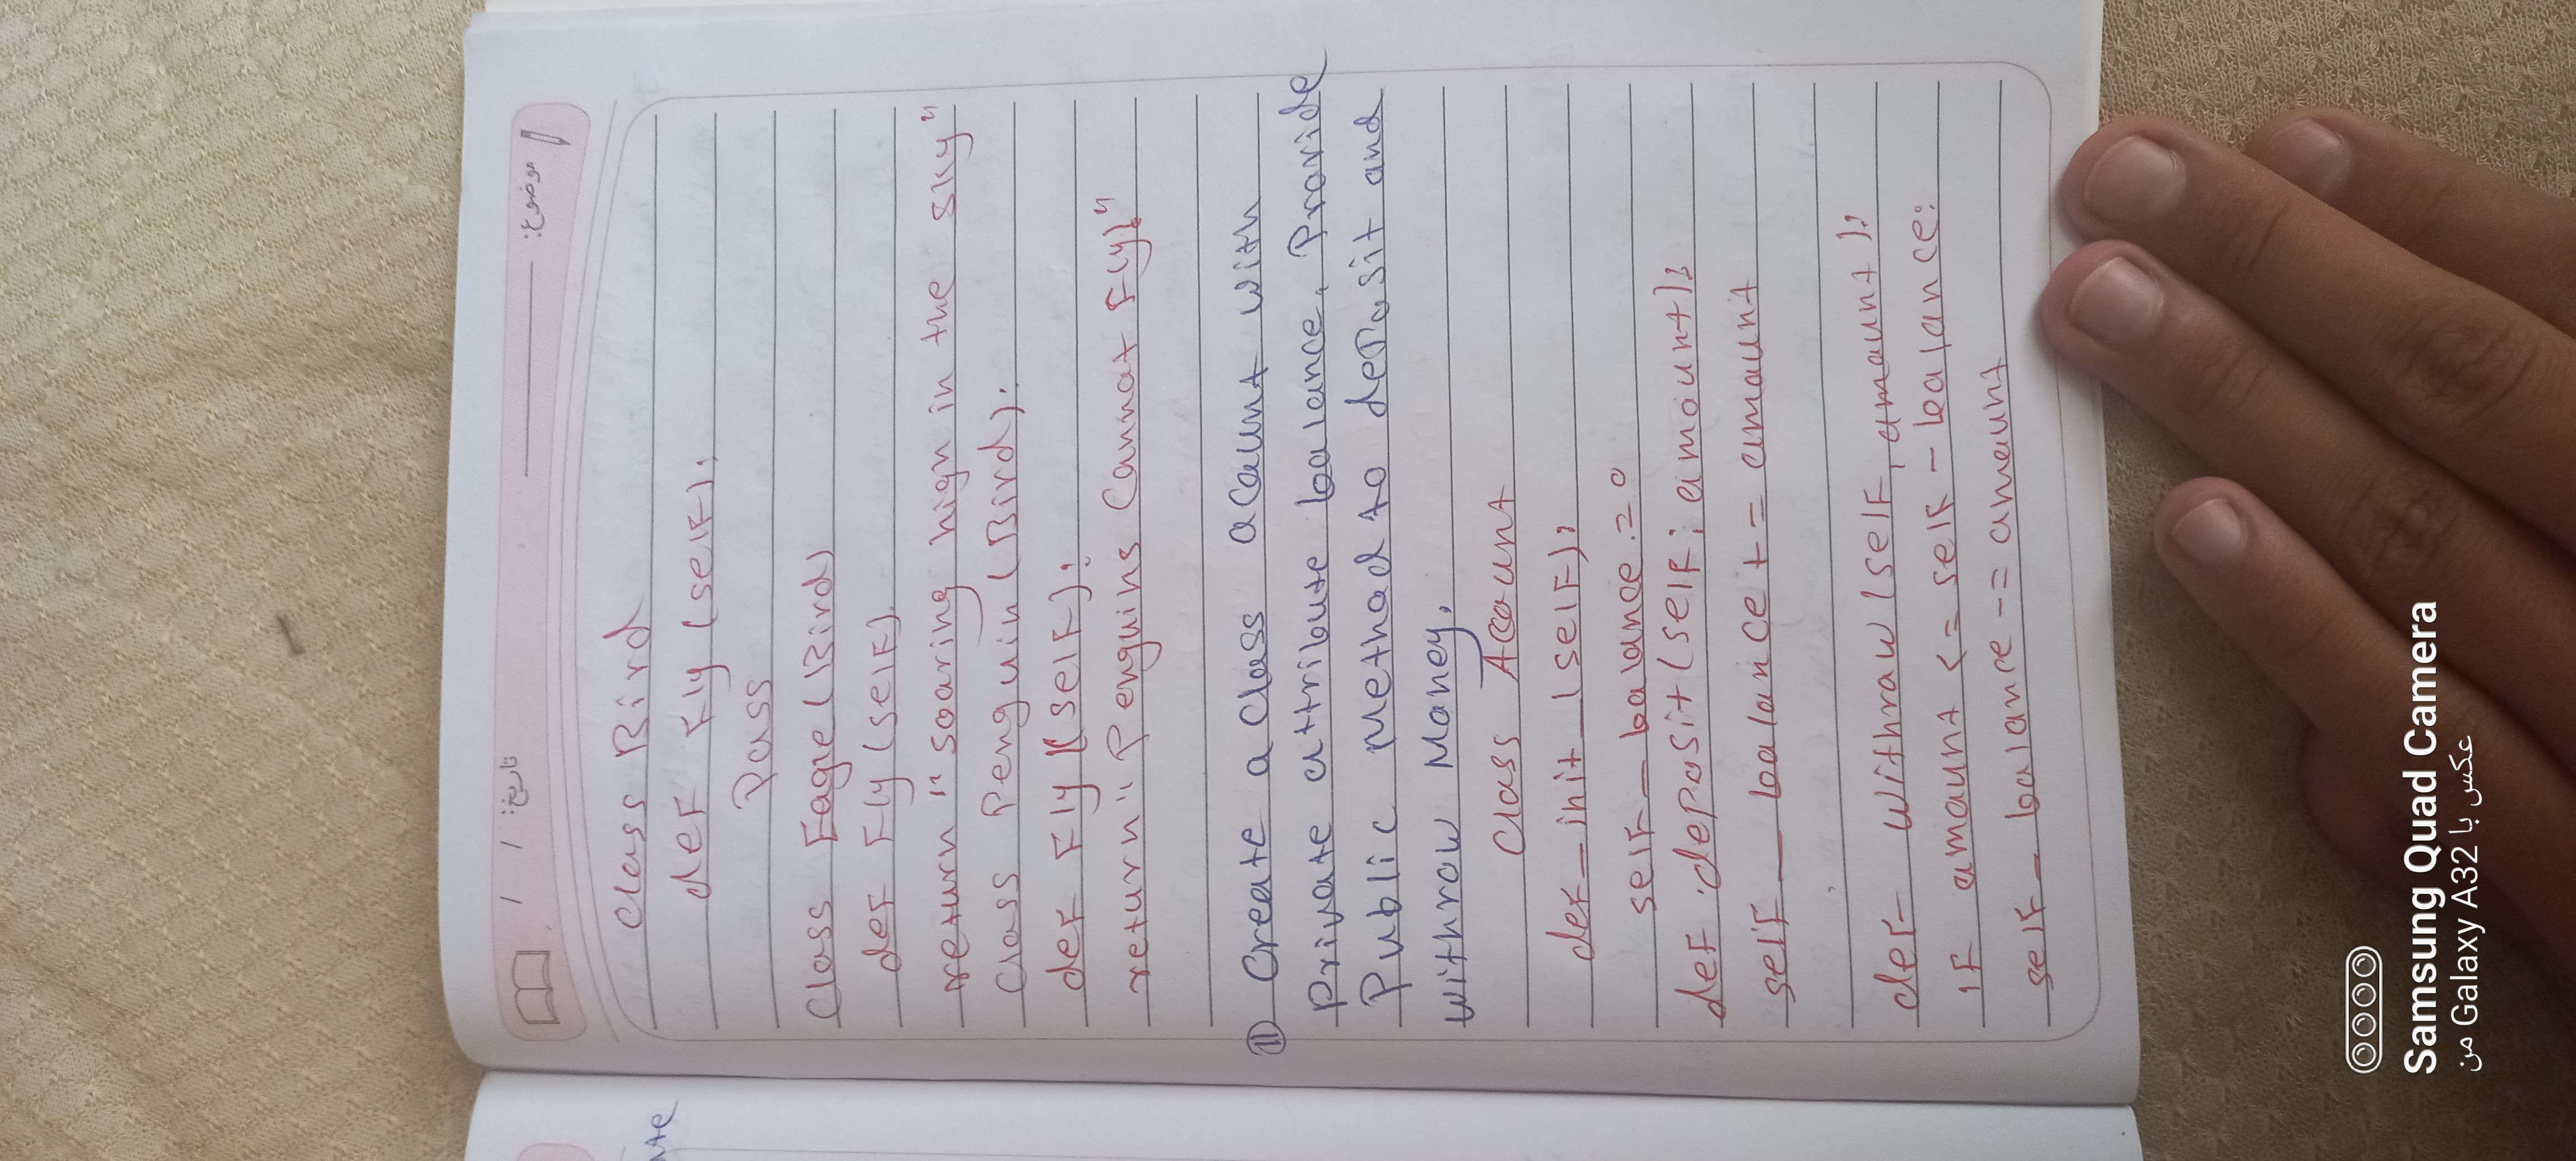 موضوع: تاریخ: / /
class Bird
def Fly (self):
Pass
Class Eagle (Bird)
def Fly (self).
return " soaring high in the sky"
Class Penguin (Bird):
def Fly (self):
return " Penguins Cannat Fly!"
11 Create a Class acaunt with
Private attribute balance. Pravide
Public Methad to depasit and
withraw Maney.
Class Accaunt
def _ init _ (self):
self _ balance = 0
def deposit (self; amount):
self _ balance += amaunt
def withraw (self, amaunt):
if amaunt <= self - balance:
self _ balance -= amaunt
ate
Samsung Quad Camera
عکس با Galaxy A32 من